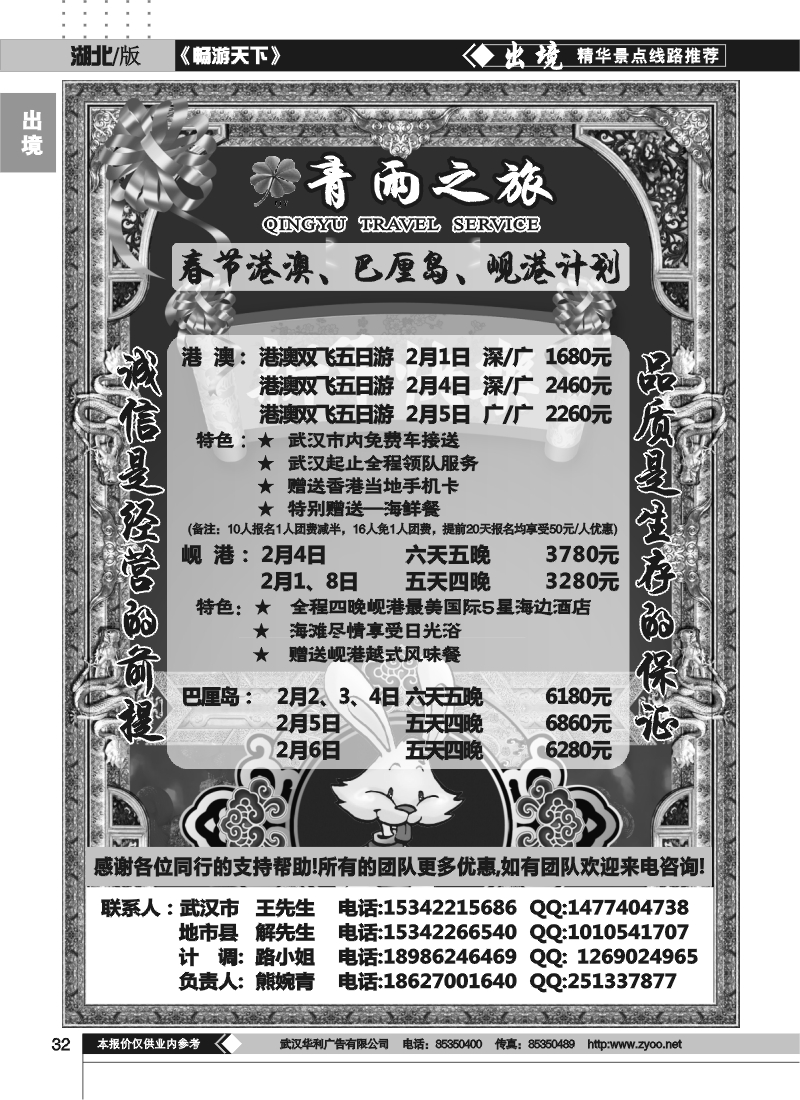 湖北/版
《畅游天下》
出境 精华景点线路推荐
出境
青雨之旅
QINGYU TRAVEL SERVICE
春节港澳、巴厘岛、岘港计划
诚信是经营的前提
品质是生存的保证
港 澳： 港澳双飞五日游 2月1日 深/广 1680元
港澳双飞五日游 2月4日 深/广 2460元
港澳双飞五日游 2月5日 广/广 2260元
特色：★ 武汉市内免费车接送
★ 武汉起止全程领队服务
★ 赠送香港当地手机卡
★ 特别赠送—海鲜餐
(备注：10人报名1人团费减半，16人免1人团费，提前20天报名均享受50元/人优惠)
岘 港：2月4日 六天五晚 3780元
2月1、8日 五天四晚 3280元
特色：★ 全程四晚岘港最美国际5星海边酒店
★ 海滩尽情享受日光浴
★ 赠送岘港越式风味餐
巴厘岛： 2月2、3、4日 六天五晚 6180元
2月5日 五天四晚 6860元
2月6日 五天四晚 6280元
感谢各位同行的支持帮助!所有的团队更多优惠,如有团队欢迎来电咨询!
联系人：武汉市 王先生 电话:15342215686 QQ:1477404738
地市县 解先生 电话:15342266540 QQ:1010541707
计 调: 路小姐 电话:18986246469 QQ: 1269024965
负责人: 熊婉青 电话:18627001640 QQ:251337877
32 本报价仅供业内参考 武汉华利广告有限公司 电话：85350400 传真：85350489 http:www.zyoo.net